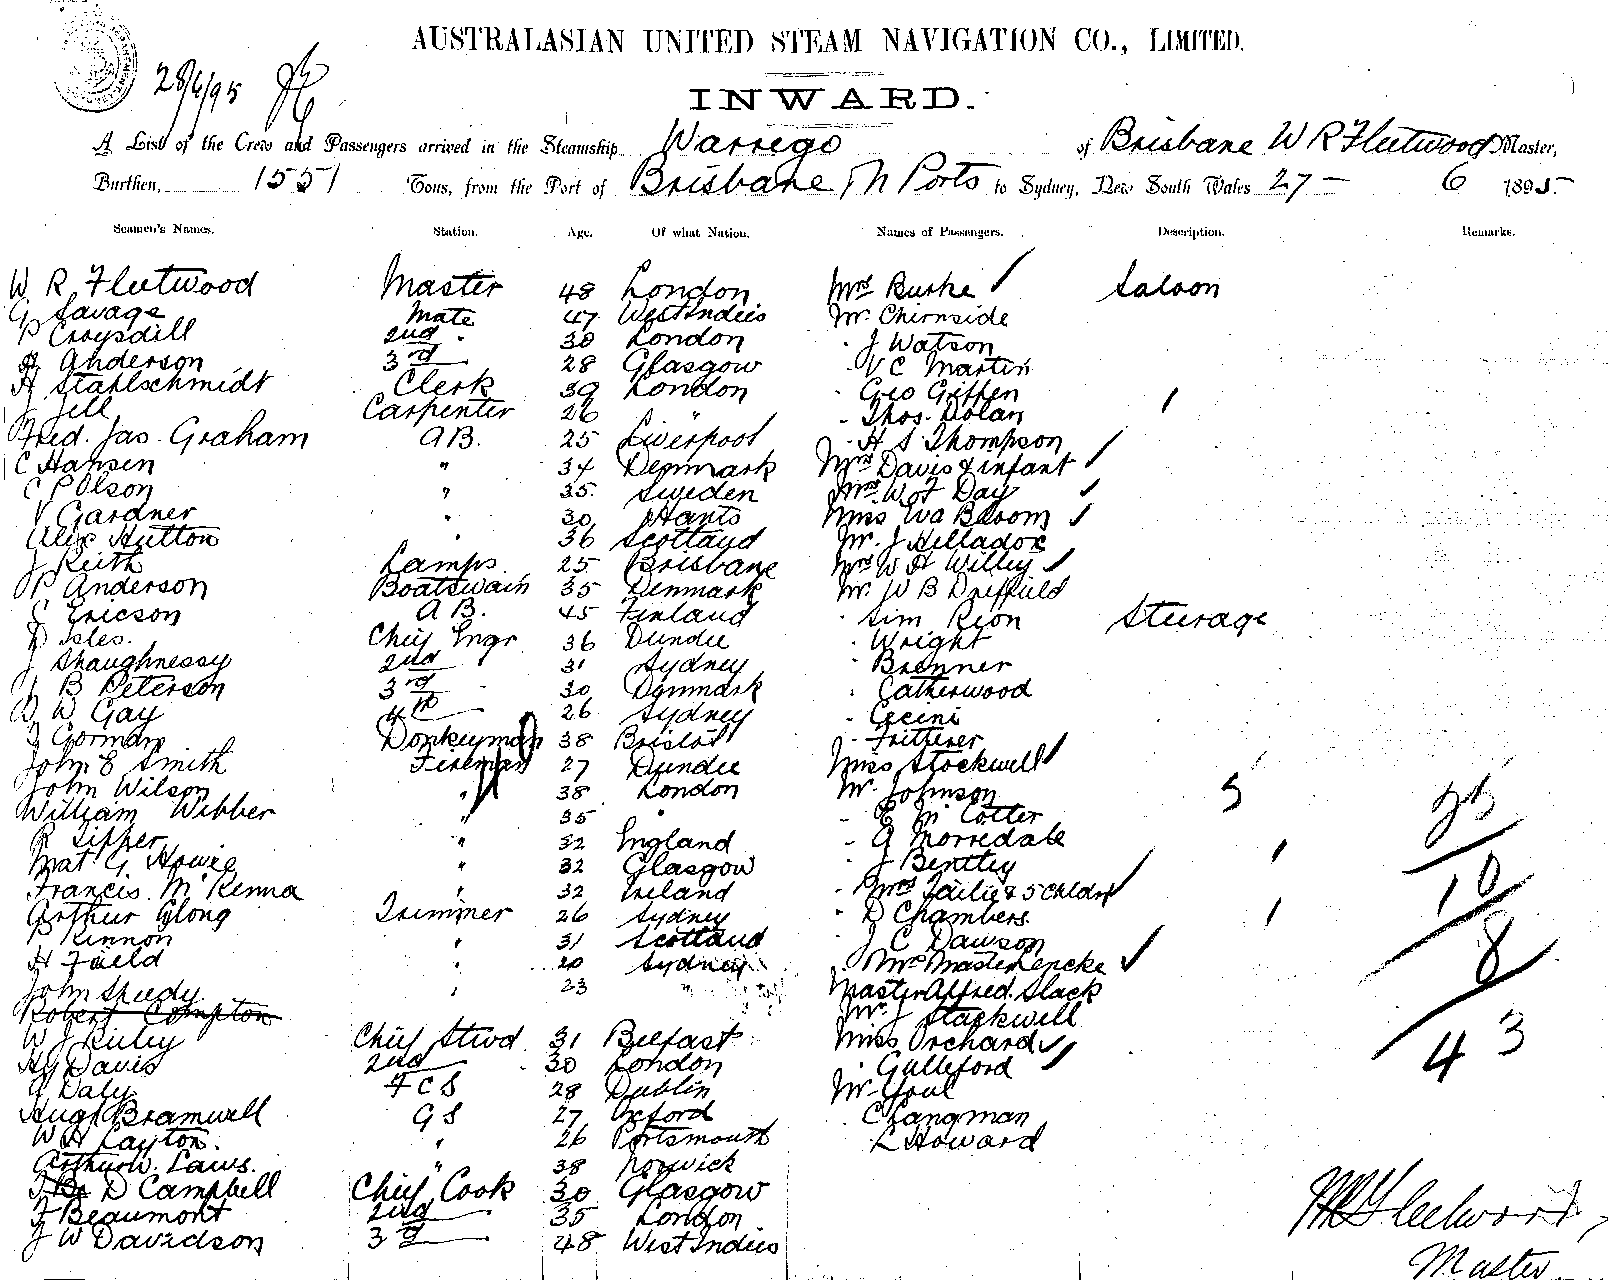 AUSTRALASIAN UNITED STEAM NAVIGATION CO., LIMITED.
28/6/95
INWARD.
A List of the Crew and Passengers arrived in the Steamship Warrego of Brisbane W R Fleetwood Master,
Burthen, 1551 Tons, from the Port of Brisbane N Ports to Sydney, New South Wales 27 - 6 1895
Seamen's Names. Station. Age. Of what Nation. Names of Passengers. Description. Remarks.
W R Fleetwood Master 48 London Mrs Burke Saloon
G Savage Mate 47 West Indies Mr Chernside
P Croysdill 2nd " 30 London " J Watson
Anderson 3rd 28 Glasgow " V C Martin
H Stahlschmidt Clerk 39 London " Geo Giffen
J Jell Carpenter 26 " " Thos. Dolan
Fred. Jas. Graham A B. 25 Liverpool " H S Thompson
C Hansen " 34 Denmark Mrs Davis & infant
C P Olson " 35 Sweden Mrs W & F Day
V Gardner " 30 Hants Miss Bloom
Alex Hutton " 36 Scotland Mr. J
J Keith Lamps 25 Brisbane Mrs W H Willey
P Anderson Boatswain 35 Denmark Mr. W B Driffield
Ericson A B. 45 Finland " Sim Rion Steerage
D Isles. Chief Engr 36 Dundee " Wright
J Shaughnessy 2nd 31 Sydney " Brenner
B Peterson 3rd 30 Denmark " Catherwood
W W Gay 4th 26 Sydney " Cecini
J Gorman Donkeyman 38 Bristol "
John E Smith Fireman 27 Dundee Miss Stockwell
John Wilson " 38 London Mr. Johnson
William Webber " 35 " " E M Cotter 5
R Sipper " 32 England " A Morredale
Mat G Howie " 32 Glasgow " J Bentley
Francis McKenna " 32 Ireland " Mrs Failie & 5 Chldrn 10
Arthur Glong Trimmer 26 Sydney " D Chambers
P Kinnon " 31 Scotland " J C Dawson
H Field " 20 Sydney " Mrs Master Lencke 8
John Speedy " 23 " Master Alfred Slack
Robert Compton Mr. J Stackwell
W J Riley Chief Stwd 31 Belfast Miss Orchard 43
H J Davis 2nd 30 London " Gulleford
Daly F C S 28 Dublin Mr. Youl
Hugh Bramwell G S 27 Oxford " C Langman
W H Layton. " 26 Portsmouth " L Howard
Arthur W. Laws. " 38 Norwick
D Campbell Chief Cook 30 Glasgow
F Beaumont 2nd 35 London
J W Davidson 3rd 48 West Indies
W R Fleetwood,
Master